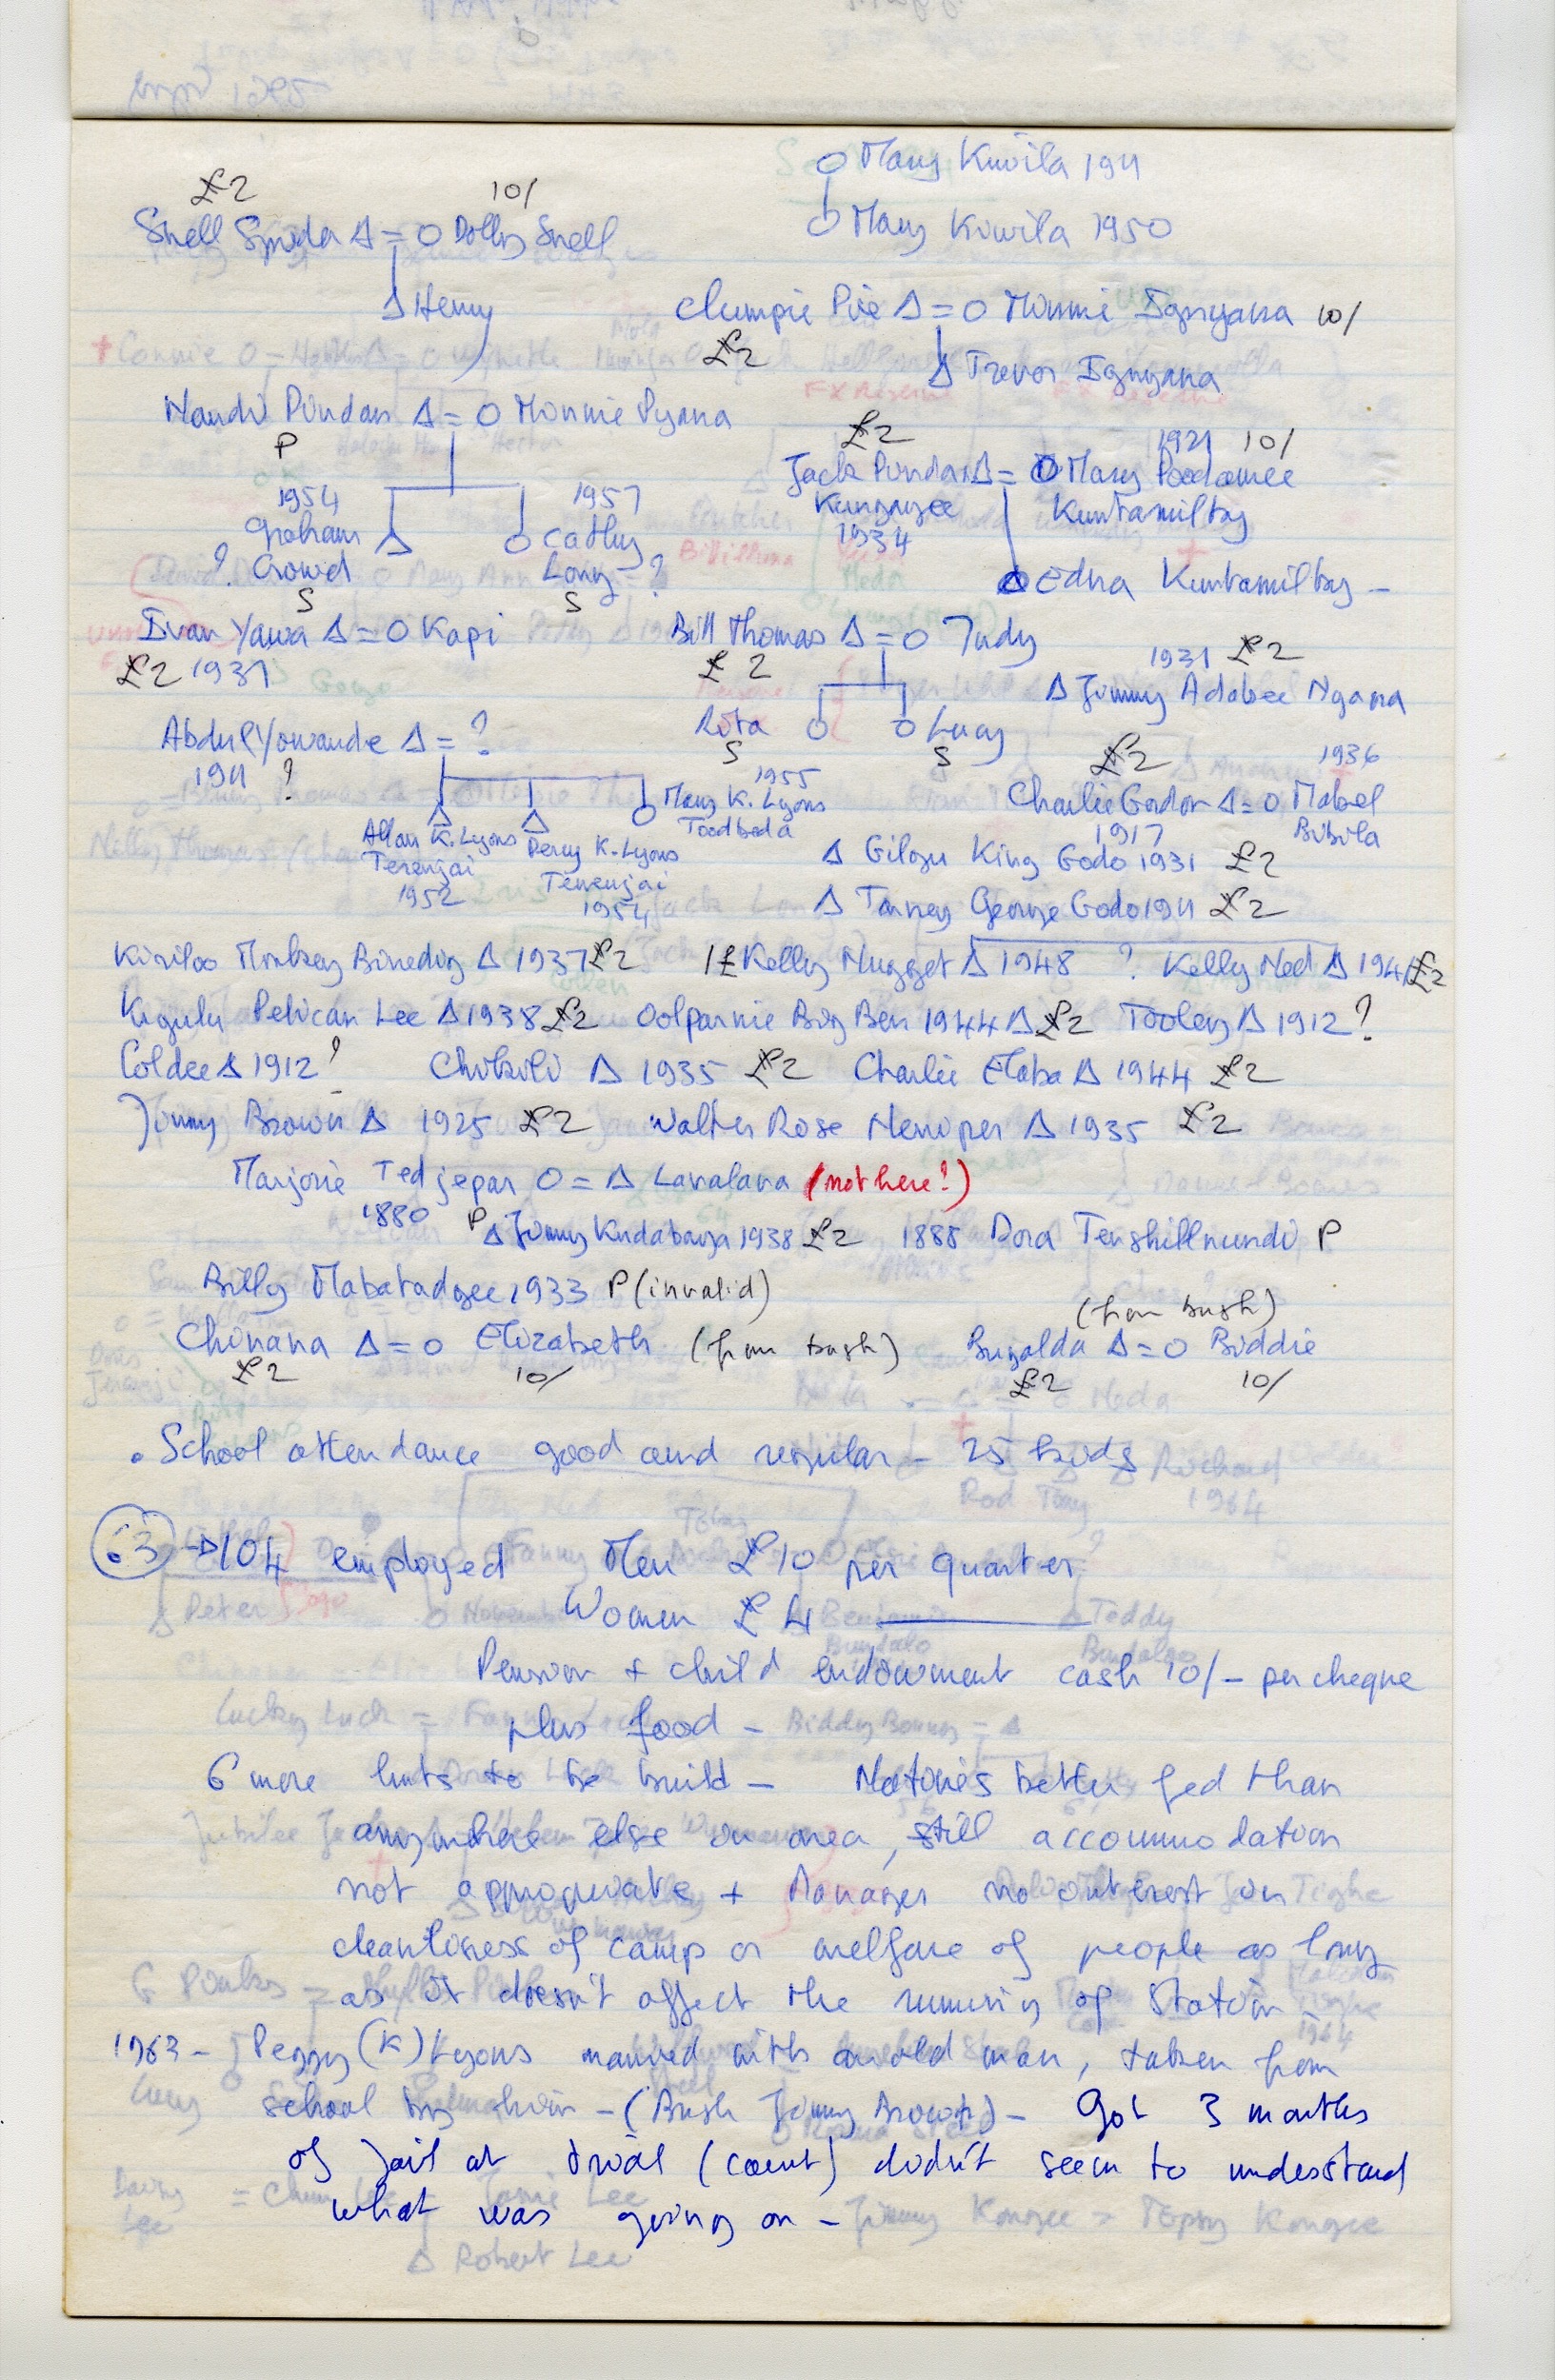 O Mary Kuvila 1911
£2 10/
Snell Spider Δ = O Dolly Snell
O Mary Kuvila 1950
Δ Henry
Clumpie Pire Δ = O Minnie Ignyana 10/
£2
Δ Trevor Ignyana
Nandi Pindan Δ = O Minnie Pyana
P
£2 1921 10/
Jack Pindan Δ = O Mary Poodamee
Kungngee Kuntamilby
1934
1954 1957
Graham Δ O Cathy
? Crowd Long ?
S S
O Edna Kuntamilby -
Ivan Yawa Δ = O Kapi
£2 1937
Bill Thomas Δ = O Judy
£2
1931 £2
Δ Jimmy Adabee Ngana
Rita O O Lucy
S S
Abdul Yowande Δ = ?
1911 ?
£2 1936
Charlie Godor Δ = O Mabel
1917 Bibila
Δ Δ O Mary K. Lyons 1955
Toodbada
Allan K. Lyons Percy K. Lyons
Terenjai Terenjai
1952 1954
Δ Gilogu King Godo 1931 £2
Δ Tarney George Godo 1911 £2
Kiriloo Monkey Binediy Δ 1937 £2 1£ Kelly Nugget Δ 1948 ? Kelly Ned Δ 1941 £2
Kigulu Pelican Lee Δ 1938 £2 Oolparnie Big Ben 1944 Δ £2 Tooley Δ 1912 ?
Coldee Δ 1912 ? Chibili Δ 1935 £2 Charlie Elaba Δ 1944 £2
Jimmy Brown Δ 1925 £2 Walter Rose Nemoper Δ 1935 £2
Marjorie Tedjepar O = Δ Lanalana (not here?)
1880 P Δ Jimmy Kudabanga 1938 £2 1885 Dora Tenshillnundi P
Billy Mabatadgee 1933 P (invalid)
(from bush)
Chinana Δ = O Elizabeth (from bush) Bugalda Δ = O Biddie
£2 10/ £2 10/
. School attendance good and regular - 25 kids
63 → 104 employed Men £10 per quarter
Women £4 ———
Pension + child endowment cash 10/- per cheque
plus food -
6 more huts to be build - Natives better fed than
anywhere else in area, still accommodation
not appropriate + Manager no interest in
cleanliness of camp or welfare of people as long
as it doesn't affect the running of Station -
1963 - Peggy (K) Lyons married with an old man, taken from
school by him - (Bush Jimmy Brown) - Got 3 months
of jail at trial (court) didn't seem to understand
what was going on -